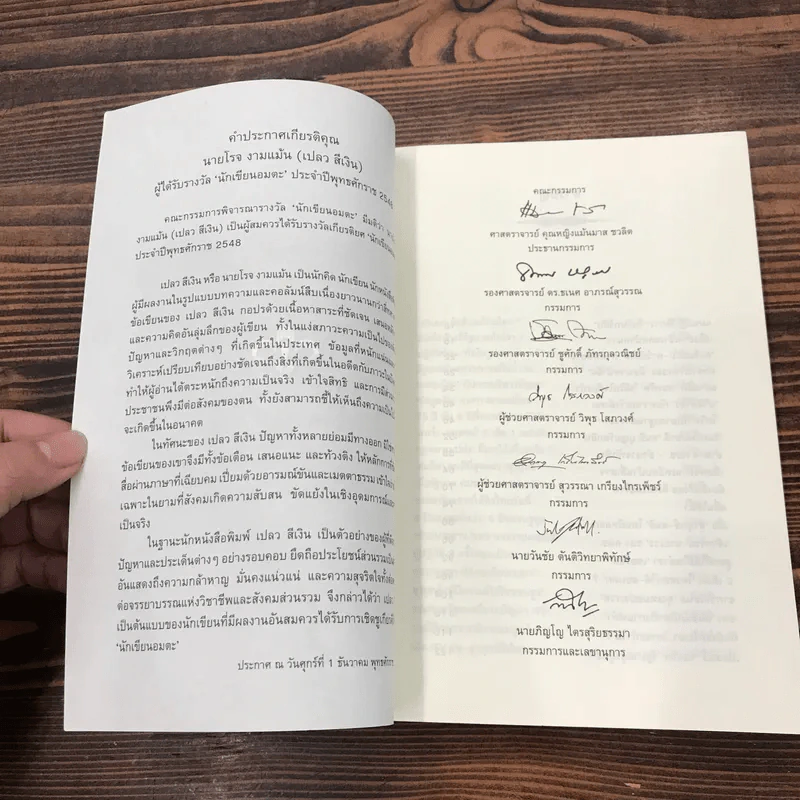 คำประกาศเกียรติคุณ
นายโรจ งามแม้น (เปลว สีเงิน)
ผู้ได้รับรางวัล ‘นักเขียนอมตะ’ ประจำปีพุทธศักราช 2548
คณะกรรมการพิจารณารางวัล ‘นักเขียนอมตะ’ มีมติว่า
งามแม้น (เปลว สีเงิน) เป็นผู้สมควรได้รับรางวัลเกียรติยศ
ประจำปีพุทธศักราช 2548
เปลว สีเงิน หรือ นายโรจ งามแม้น เป็นนักคิด นักเขียน
ผู้มีผลงานในรูปแบบบทความและคอลัมน์สืบเนื่องยาวนานกว่า
ข้อเขียนของ เปลว สีเงิน กอปรด้วยเนื้อหาสาระที่ชัดเจน
และความคิดอันลุ่มลึกของผู้เขียน ทั้งในแง่สภาวะความเป็นไป
ปัญหาและวิกฤตต่างๆ ที่เกิดขึ้นในประเทศ ข้อมูลที่หนักแน่น
วิเคราะห์เปรียบเทียบอย่างชัดเจนถึงสิ่งที่เกิดขึ้นในอดีตกับภาวะ
ทำให้ผู้อ่านได้ตระหนักถึงความเป็นจริง เข้าใจสิทธิ และการมี
ประชาชนพึงมีต่อสังคมของตน ทั้งยังสามารถชี้ให้เห็นถึงความ
จะเกิดขึ้นในอนาคต
ในทัศนะของ เปลว สีเงิน ปัญหาทั้งหลายย่อมมีทางออก
ข้อเขียนของเขาจึงมีทั้งข้อเตือน เสนอแนะ และท้วงติง ให้หลักการ
สื่อผ่านภาษาที่เฉียบคม เปี่ยมด้วยอารมณ์ขันและเมตตาธรรม
เฉพาะในยามที่สังคมเกิดความสับสน ขัดแย้งในเชิงอุดมการณ์
เป็นจริง
ในฐานะนักหนังสือพิมพ์ เปลว สีเงิน เป็นตัวอย่างของผู้ที่
ปัญหาและประเด็นต่างๆ อย่างรอบคอบ ยึดถือประโยชน์ส่วนรวม
อันแสดงถึงความกล้าหาญ มั่นคงแน่วแน่ และความสุจริตใจ
ต่อจรรยาบรรณแห่งวิชาชีพและสังคมส่วนรวม จึงกล่าวได้ว่า
เป็นต้นแบบของนักเขียนที่มีผลงานอันสมควรได้รับการเชิดชู
‘นักเขียนอมตะ’
ประกาศ ณ วันศุกร์ที่ 1 ธันวาคม
คณะกรรมการ
ศาสตราจารย์ คุณหญิงแม้นมาส ชวลิต
ประธานกรรมการ
รองศาสตราจารย์ ดร.ธเนศ อาภรณ์สุวรรณ
กรรมการ
รองศาสตราจารย์ ชูศักดิ์ ภัทรกุลวณิชย์
กรรมการ
ผู้ช่วยศาสตราจารย์ วิพุธ โสภวงศ์
กรรมการ
ผู้ช่วยศาสตราจารย์ สุวรรณา เกรียงไกรเพ็ชร์
กรรมการ
นายวันชัย ตันติวิทยาพิทักษ์
กรรมการ
นายภิญโญ ไตรสุริยธรรมา
กรรมการและเลขานุการ